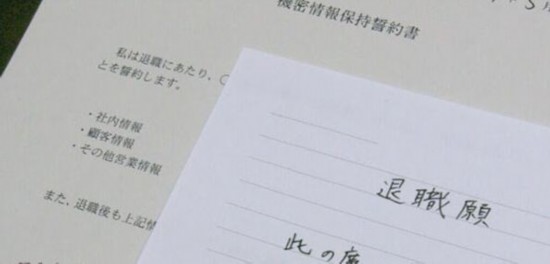 機密情報保持誓約書
私は退職にあたり、
とを誓約します。
・社内情報
・顧客情報
・その他営業情報
また、退職後も上記情
退職願
此の度